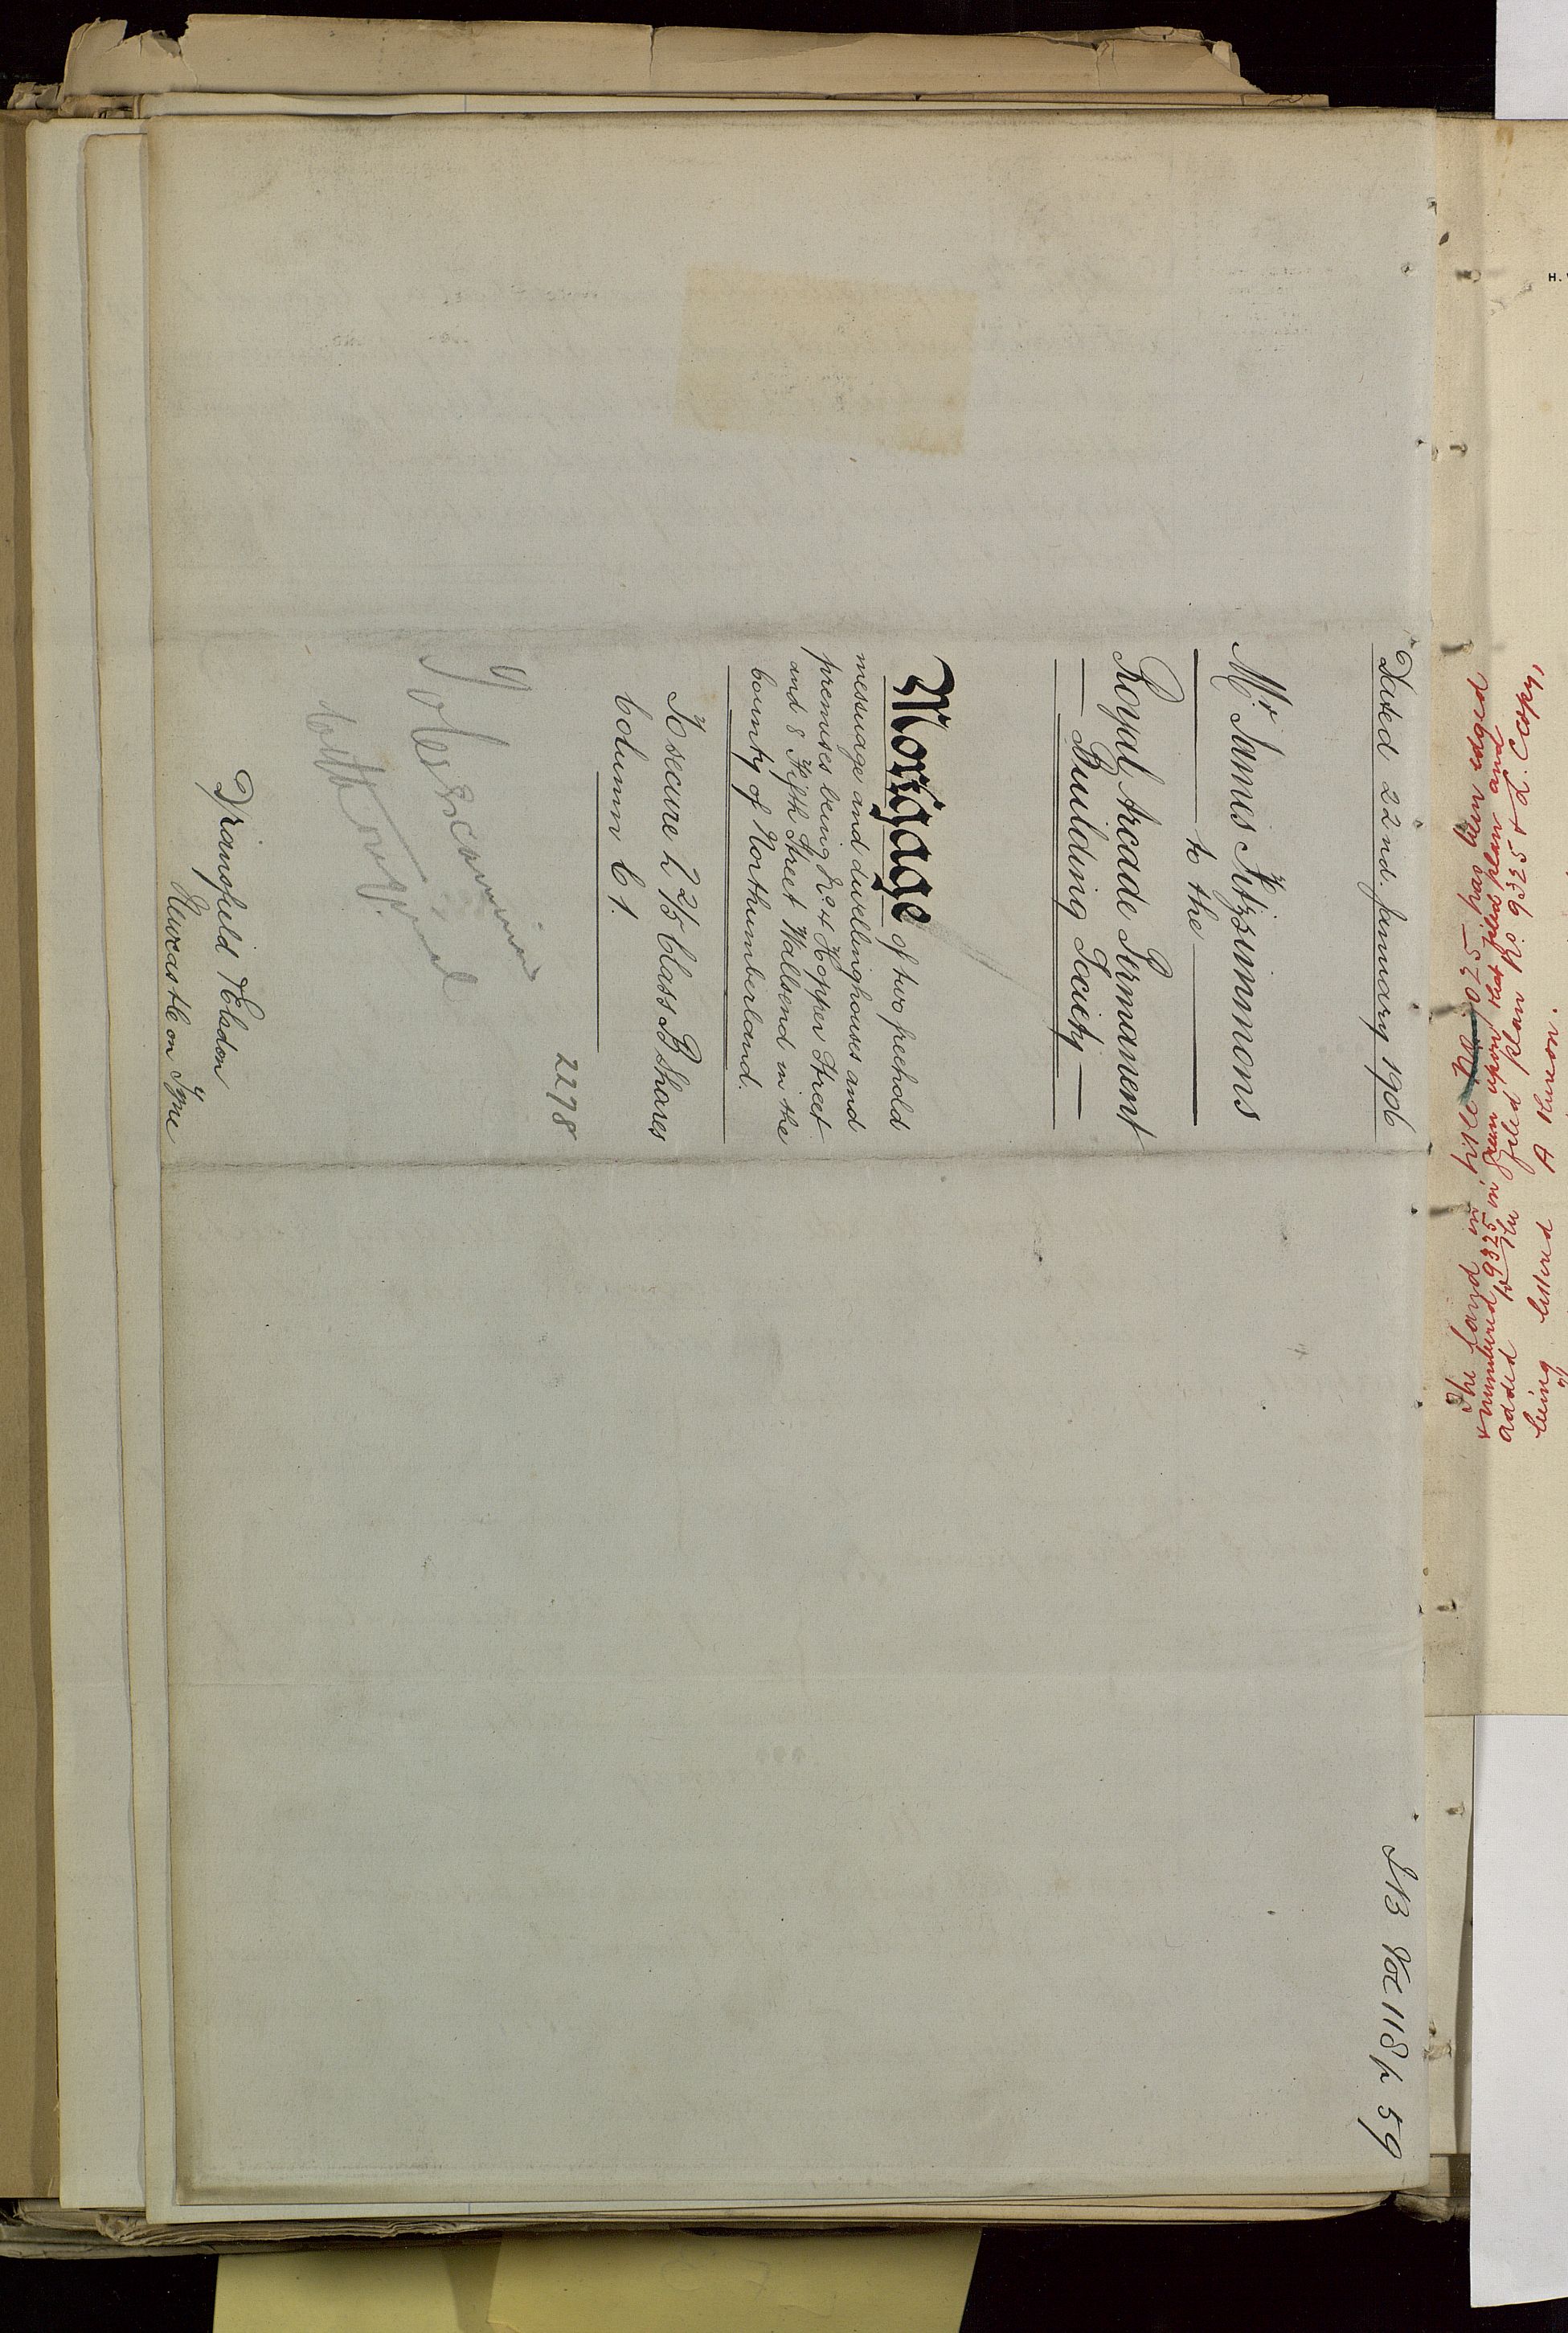 Dated 22nd. January 1906
Mr. James Fitzsimmons
to the
Royal Arcade Permanent
Building Society
Mortgage of two freehold
messuage and dwellinghouses and
premises being No. 4 Hopper Street
and 8 Fifth Street Wallsend in the
County of Northumberland.
To secure 2 2/5 Class B Shares
Column C 1.
2298
with original
Dransfield & Elsdon
Newcastle on Tyne
LB Vol 118 p 59
The land in title No. 025 has been edged
& numbered 9325 in green upon that filed plan and
added to the filed plan No. 9325 & L. C. copy,
being lettered A thereon.
H.